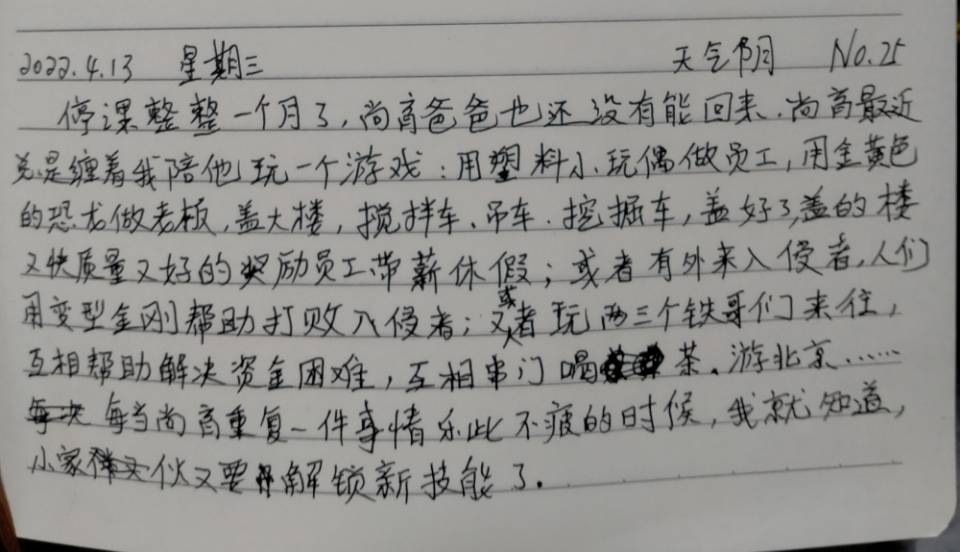 2022.4.13 星期三 天气阴 No.25
停课整整一个月了,尚高爸爸也还没有能回来.尚高最近
总是缠着我陪他玩一个游戏:用塑料小玩偶做员工,用金黄色
的恐龙做老板,盖大楼,搅拌车、吊车.挖掘车,盖好了,盖的楼
又快质量又好的奖励员工带薪休假;或者有外来入侵者,人们
用变型金刚帮助打败入侵者;或者玩两三个铁哥们来往,
互相帮助解决资金困难,互相串门喝茶。游北京……
每次 每当尚高重复一件事情乐此不疲的时候,我就知道,
小家伙又要解锁新技能了.